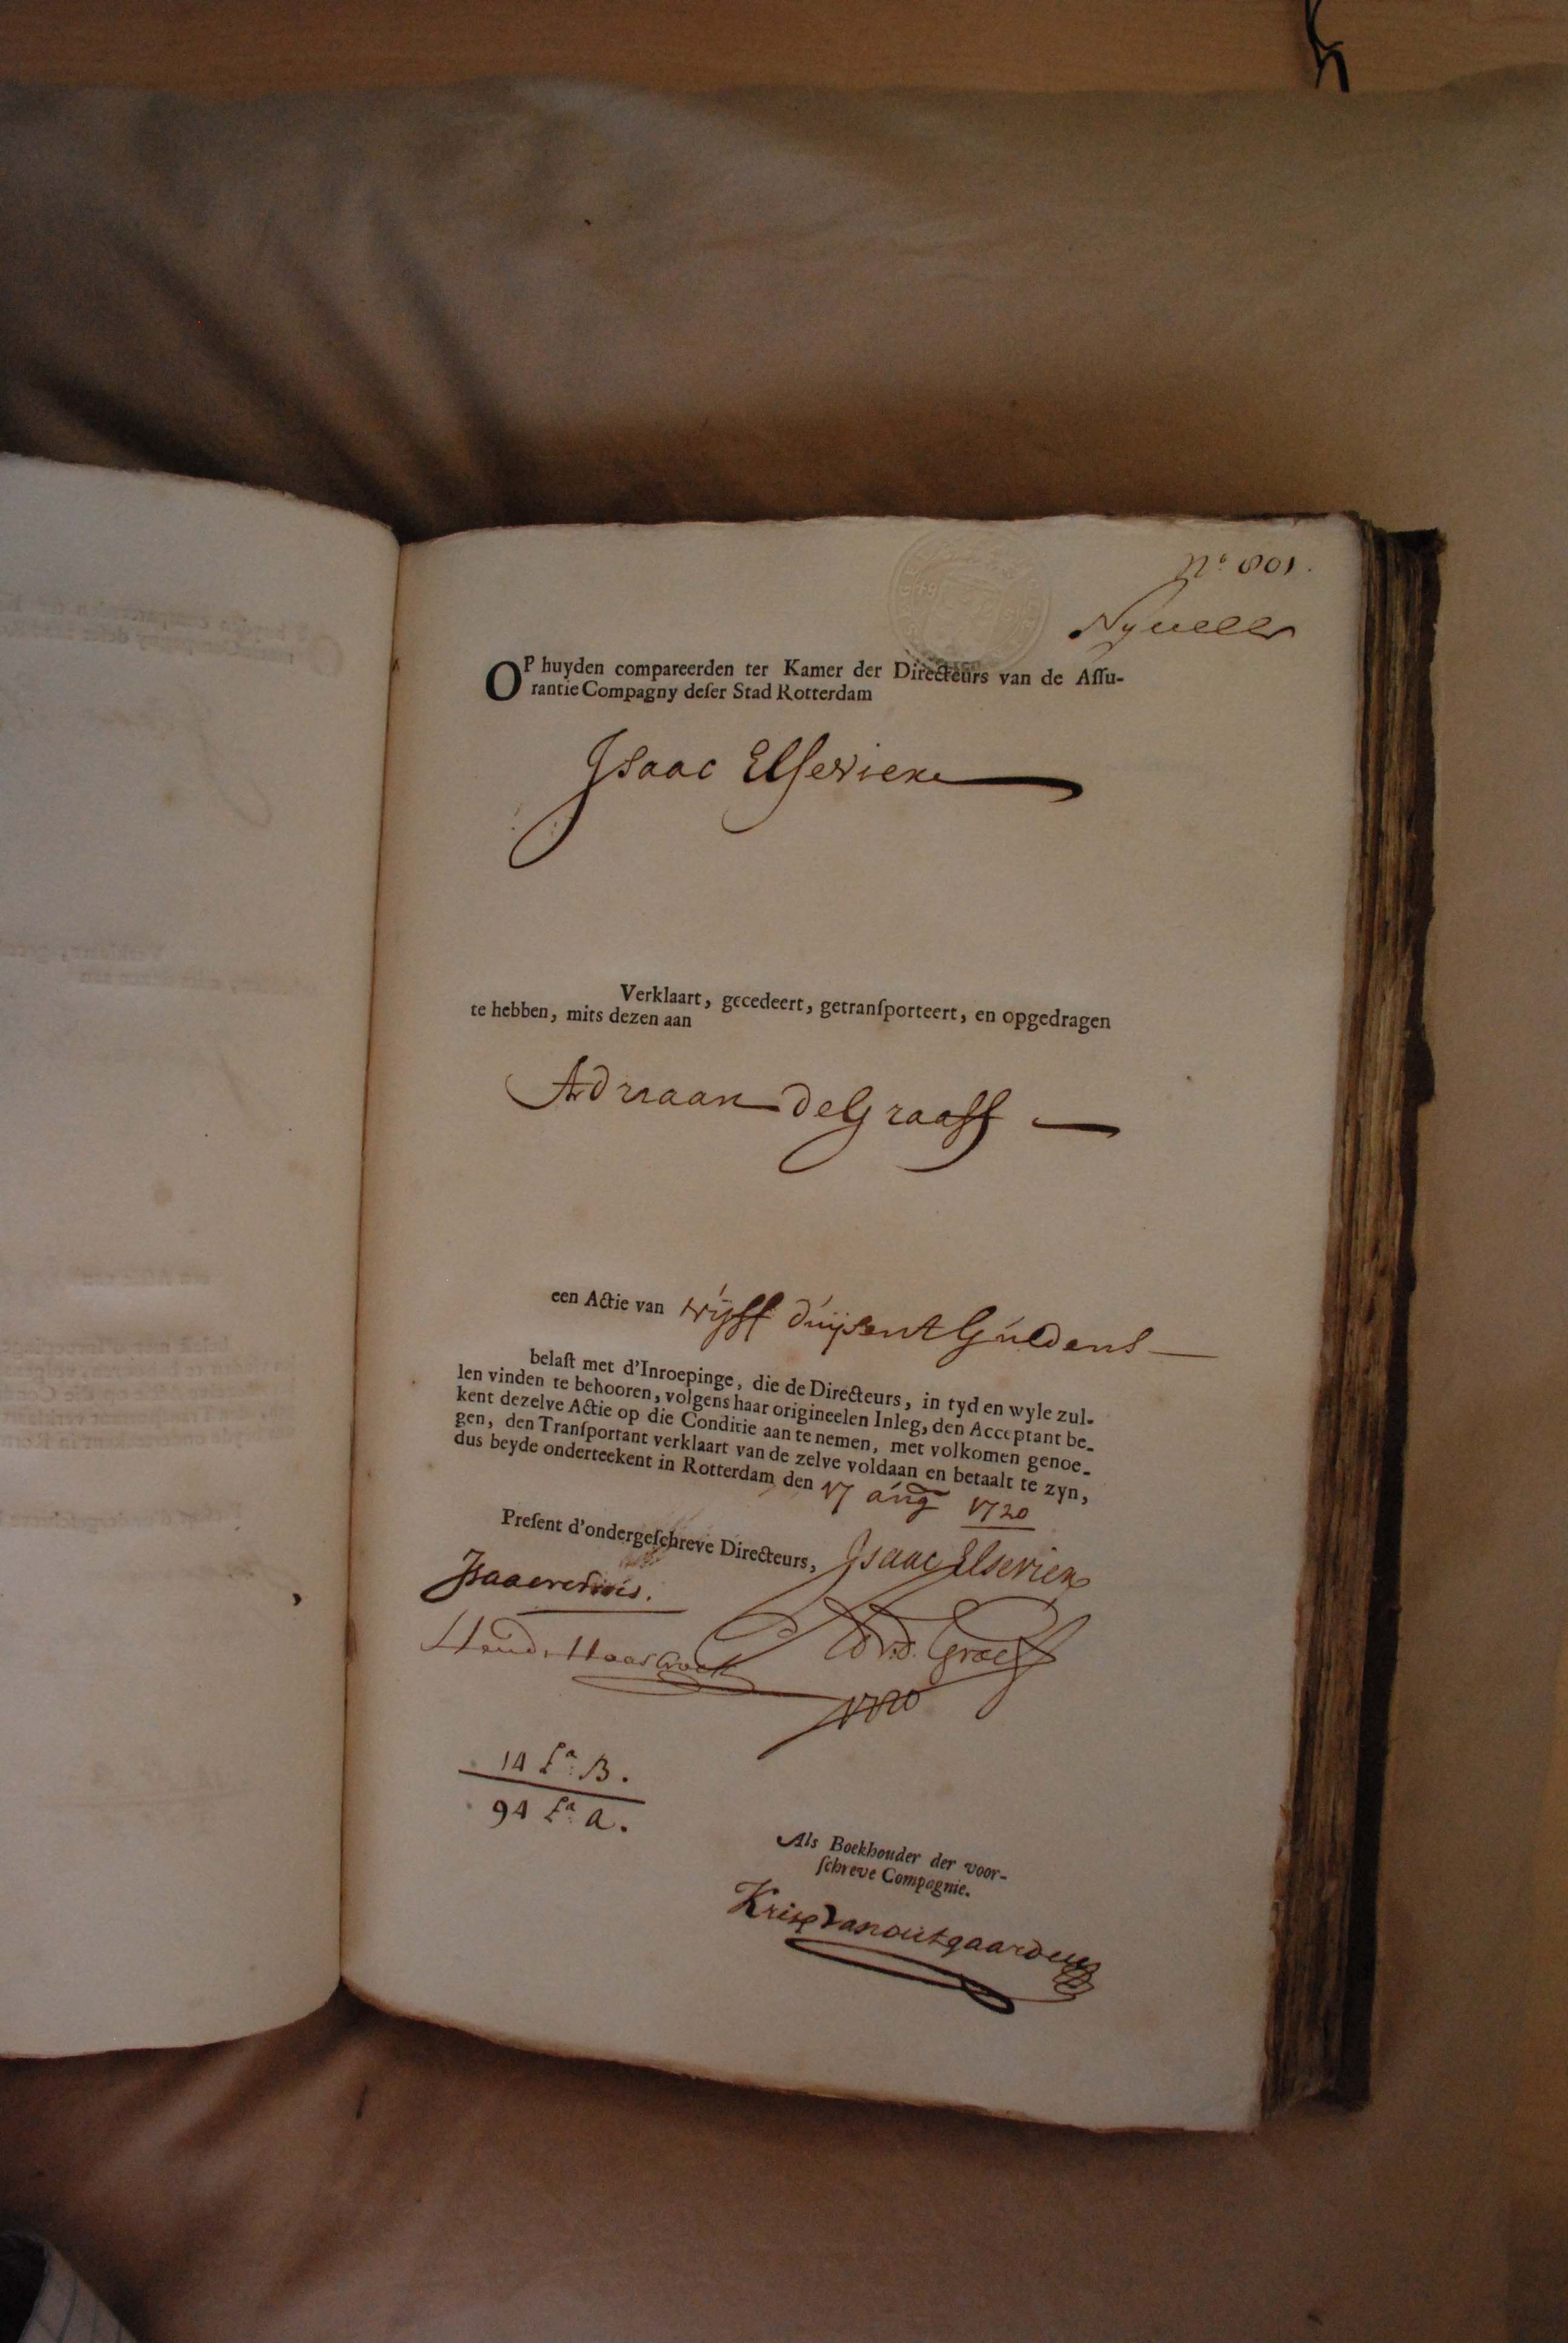 Nº 801.
Nyvelle
OP huyden compareerden ter Kamer der Directeurs van de Aſſu-
rantie Compagny deſer Stad Rotterdam
Isaac Elsevier
Verklaart, gecedeert, getranſporteert, en opgedragen
te hebben, mits dezen aan
Adriaan de Graaff
een Actie van vyff duysent Guldens
belaſt met d'Inroepinge, die de Directeurs, in tyd en wyle zul-
len vinden te behooren, volgens haar origineelen Inleg, den Acceptant be-
kent dezelve Actie op die Conditie aan te nemen, met volkomen genoe-
gen, den Tranſportant verklaart van de zelve voldaan en betaalt te zyn,
dus beyde onderteekent in Rotterdam den 17 aug 1720
Preſent d'ondergeſchreve Directeurs, Isaac Elsevier
Hend. Haasbroek
1720
14 Lª B.
94 Lª A.
Als Boekhouder der voor-
ſchreve Compagnie.